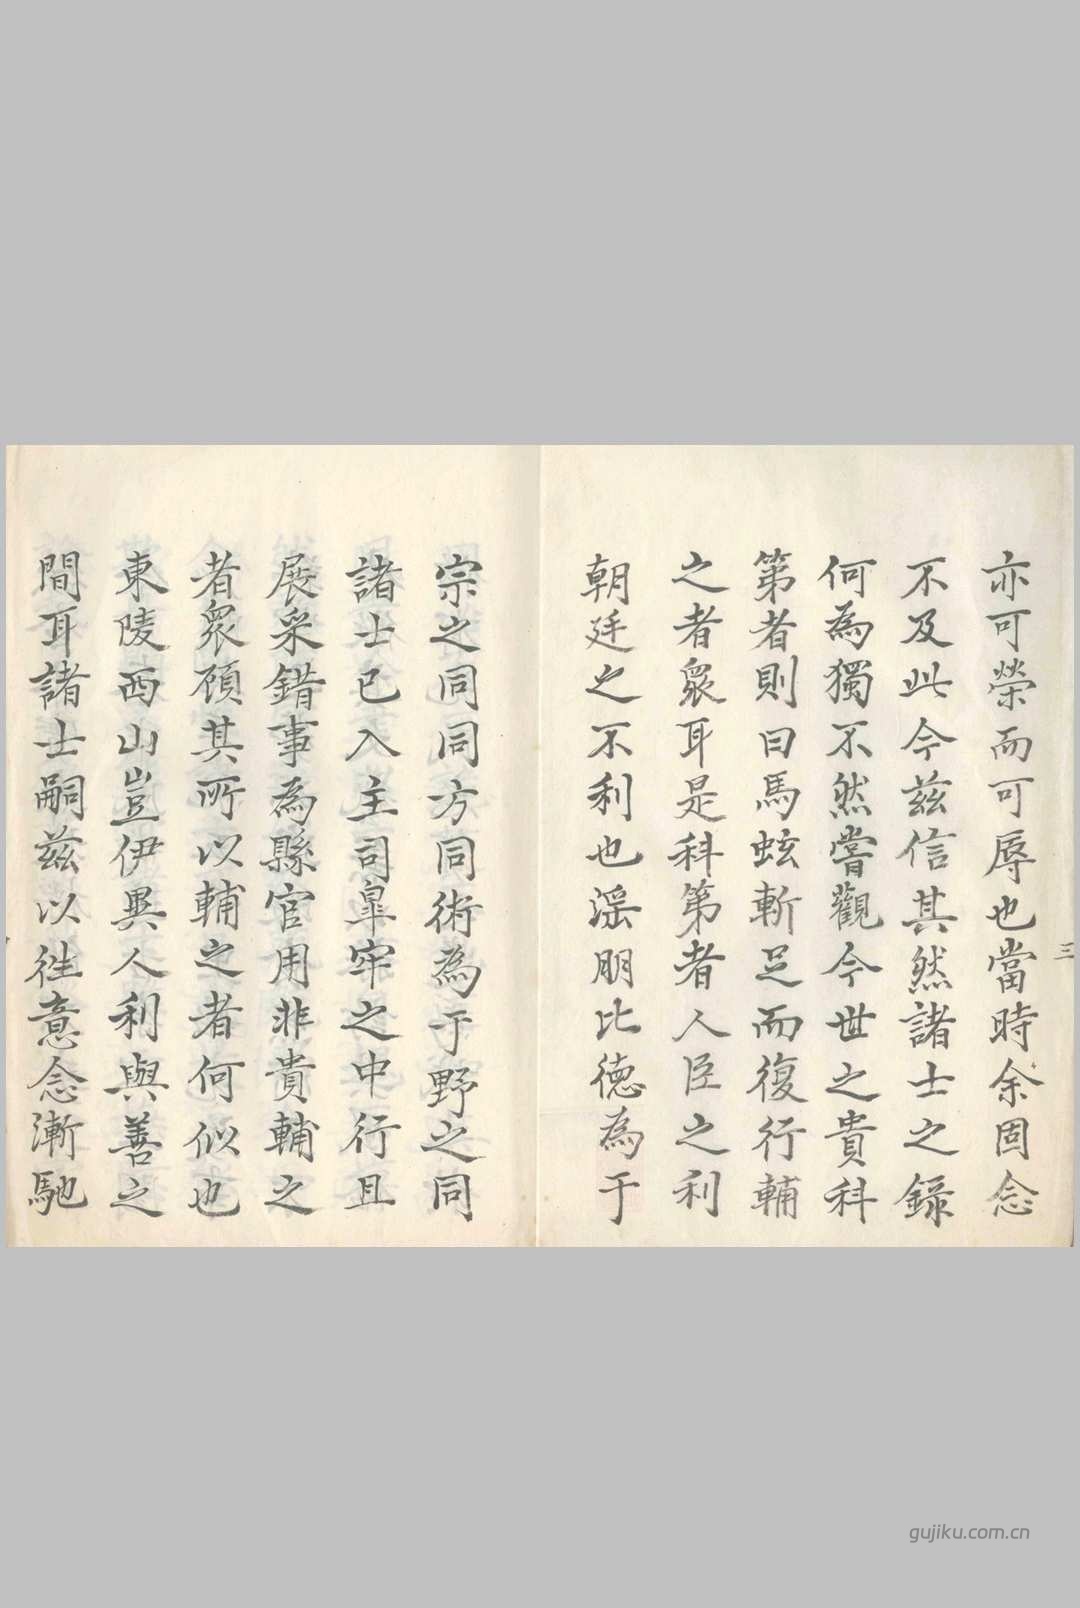 亦可榮而可辱也當時余固念
不及此今茲信其然諸士之錄
何為獨不然嘗觀今世之貴科
第者則曰馬蚿斬足而復行輔
之者衆耳是科第者人臣之利
朝廷之不利也淫朋比德為于
宗之同同方同術為于野之同
諸士已入主司皐牢之中行且
展采錯事為縣官用非貴輔之
者衆顧其所以輔之者何似也
東陵西山豈伊異人利與善之
間耳諸士嗣茲以往意念漸馳
三
gujiku.com.cn